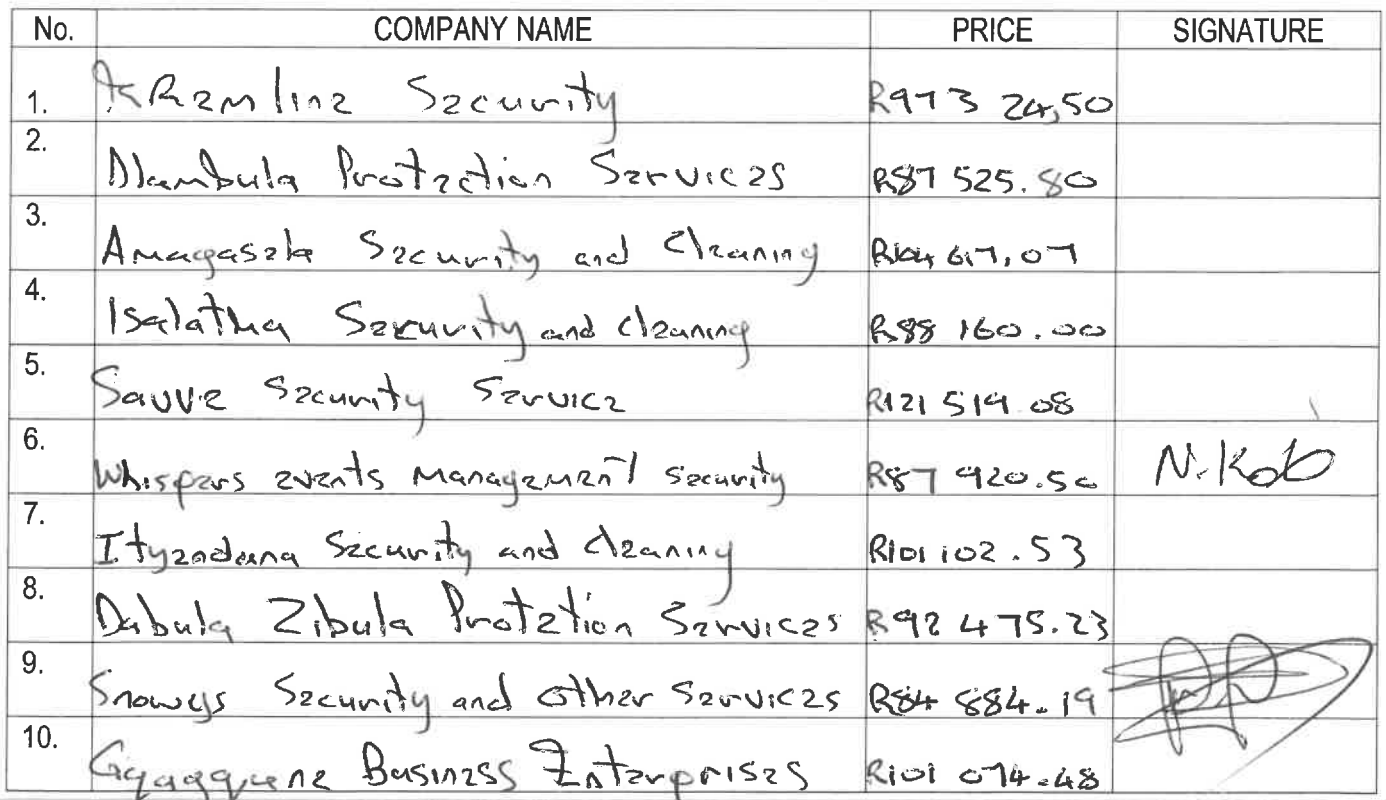 No. COMPANY NAME PRICE SIGNATURE
1. Security R973 24,50
2. Dlambula Protection Services R87 525.80
3. Amagasela Security and Cleaning R104 617,07
4. Isalatha Security and cleaning R88 160.00
5. Sauve Security Service R121 519.08
6. Whispers events Management security R87 920.50 N.Kob
7. Security and cleaning R101 102.53
8. Dabula Zibula Protetion Services R92 475.23
9. Snowys Security and other Services R84 884.19
10. Business Enterprises R101 074.48